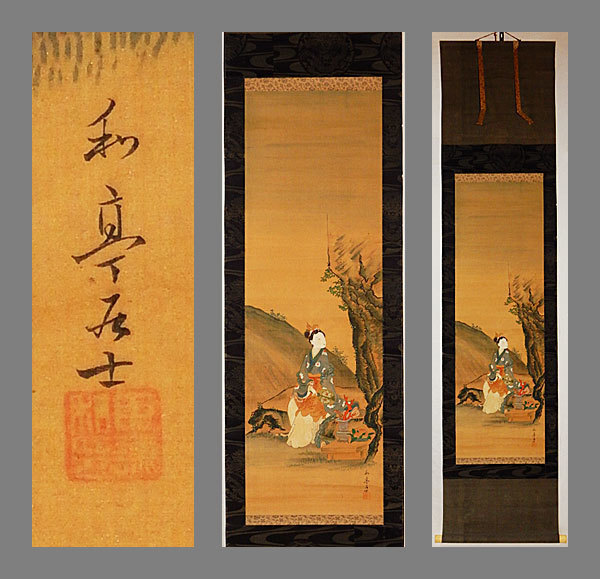 和亭居士